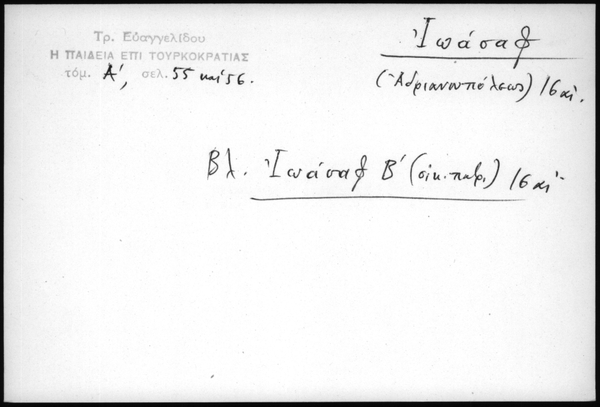 Τρ. Εὐαγγελίδου
Η ΠΑΙΔΕΙΑ ΕΠΙ ΤΟΥΡΚΟΚΡΑΤΙΑΣ
τόμ. Α', σελ. 55 καί 56.
Ἰωάσαφ
(Ἀδριανουπόλεως) 16 αἰ.
Βλ. Ἰωάσαφ Β' (οἰκ. πατρ.) 16 αἰ.